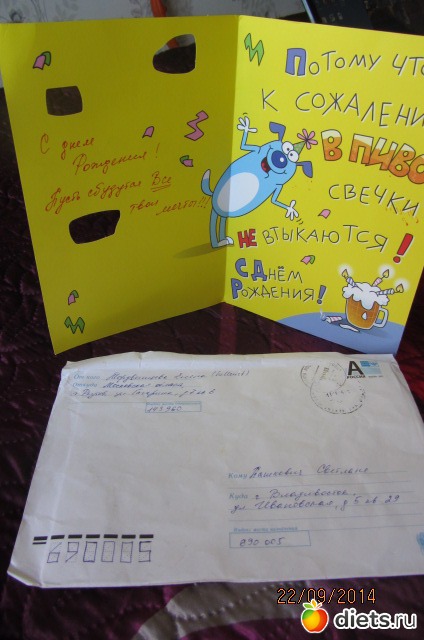 С днем
Рождения!
Пусть сбудутся Все
твои мечты!!!
Потому что
к сожалени
в пиво
свечки
не втыкаются!
С Днём
Рождения!
От кого
Откуда Московская
143960
А
Кому Башкевич Светлане
Куда г. Владивосток
ул. Ивановская, д 5 кв 29
690 005
690005
22/09/2014
diets.ru